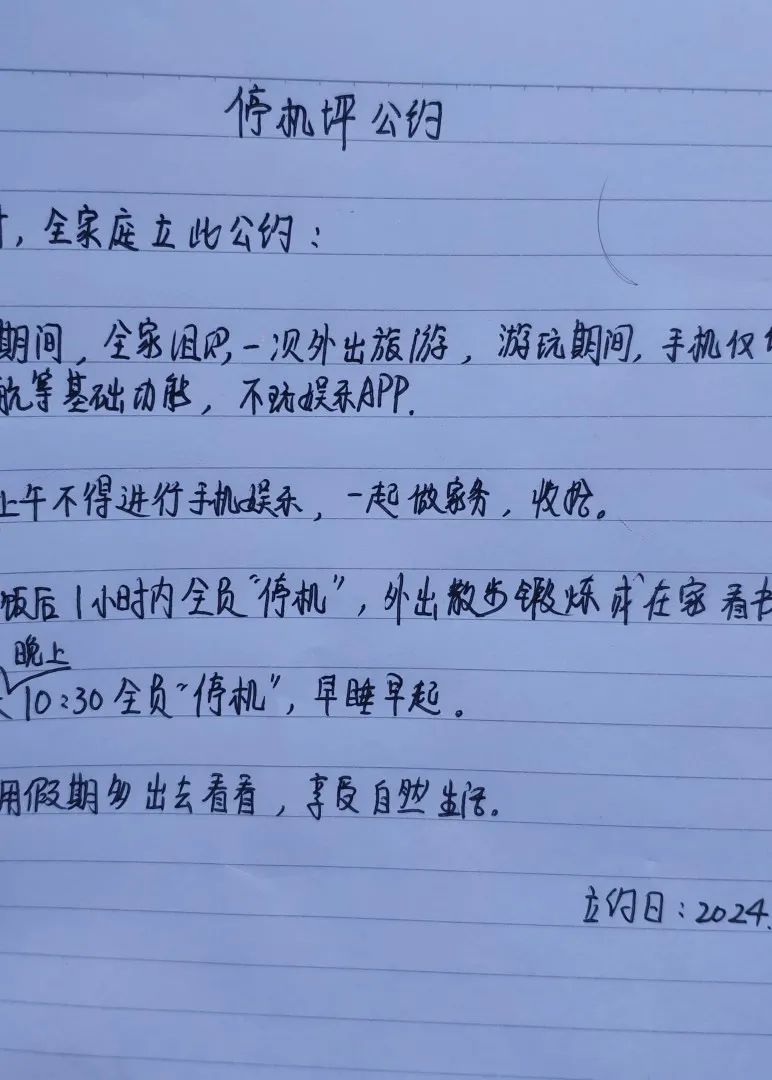 停机坪公约
，全家庭立此公约：
期间，全家组织一次外出旅游，游玩期间，手机仅
航等基础功能，不玩娱乐APP.
上午不得进行手机娱乐，一起做家务，收拾。
饭后1小时内全员“停机”，外出散步锻炼或在家看书
晚上
10:30全员“停机”，早睡早起。
用假期多出去看看，享受自然生活。
立约日：2024.